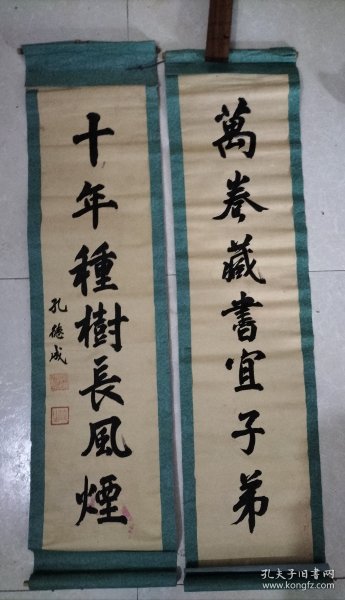 萬卷藏書宜子弟
十年種樹長風煙
孔德成
孔夫子旧书网
www.kongfz.com